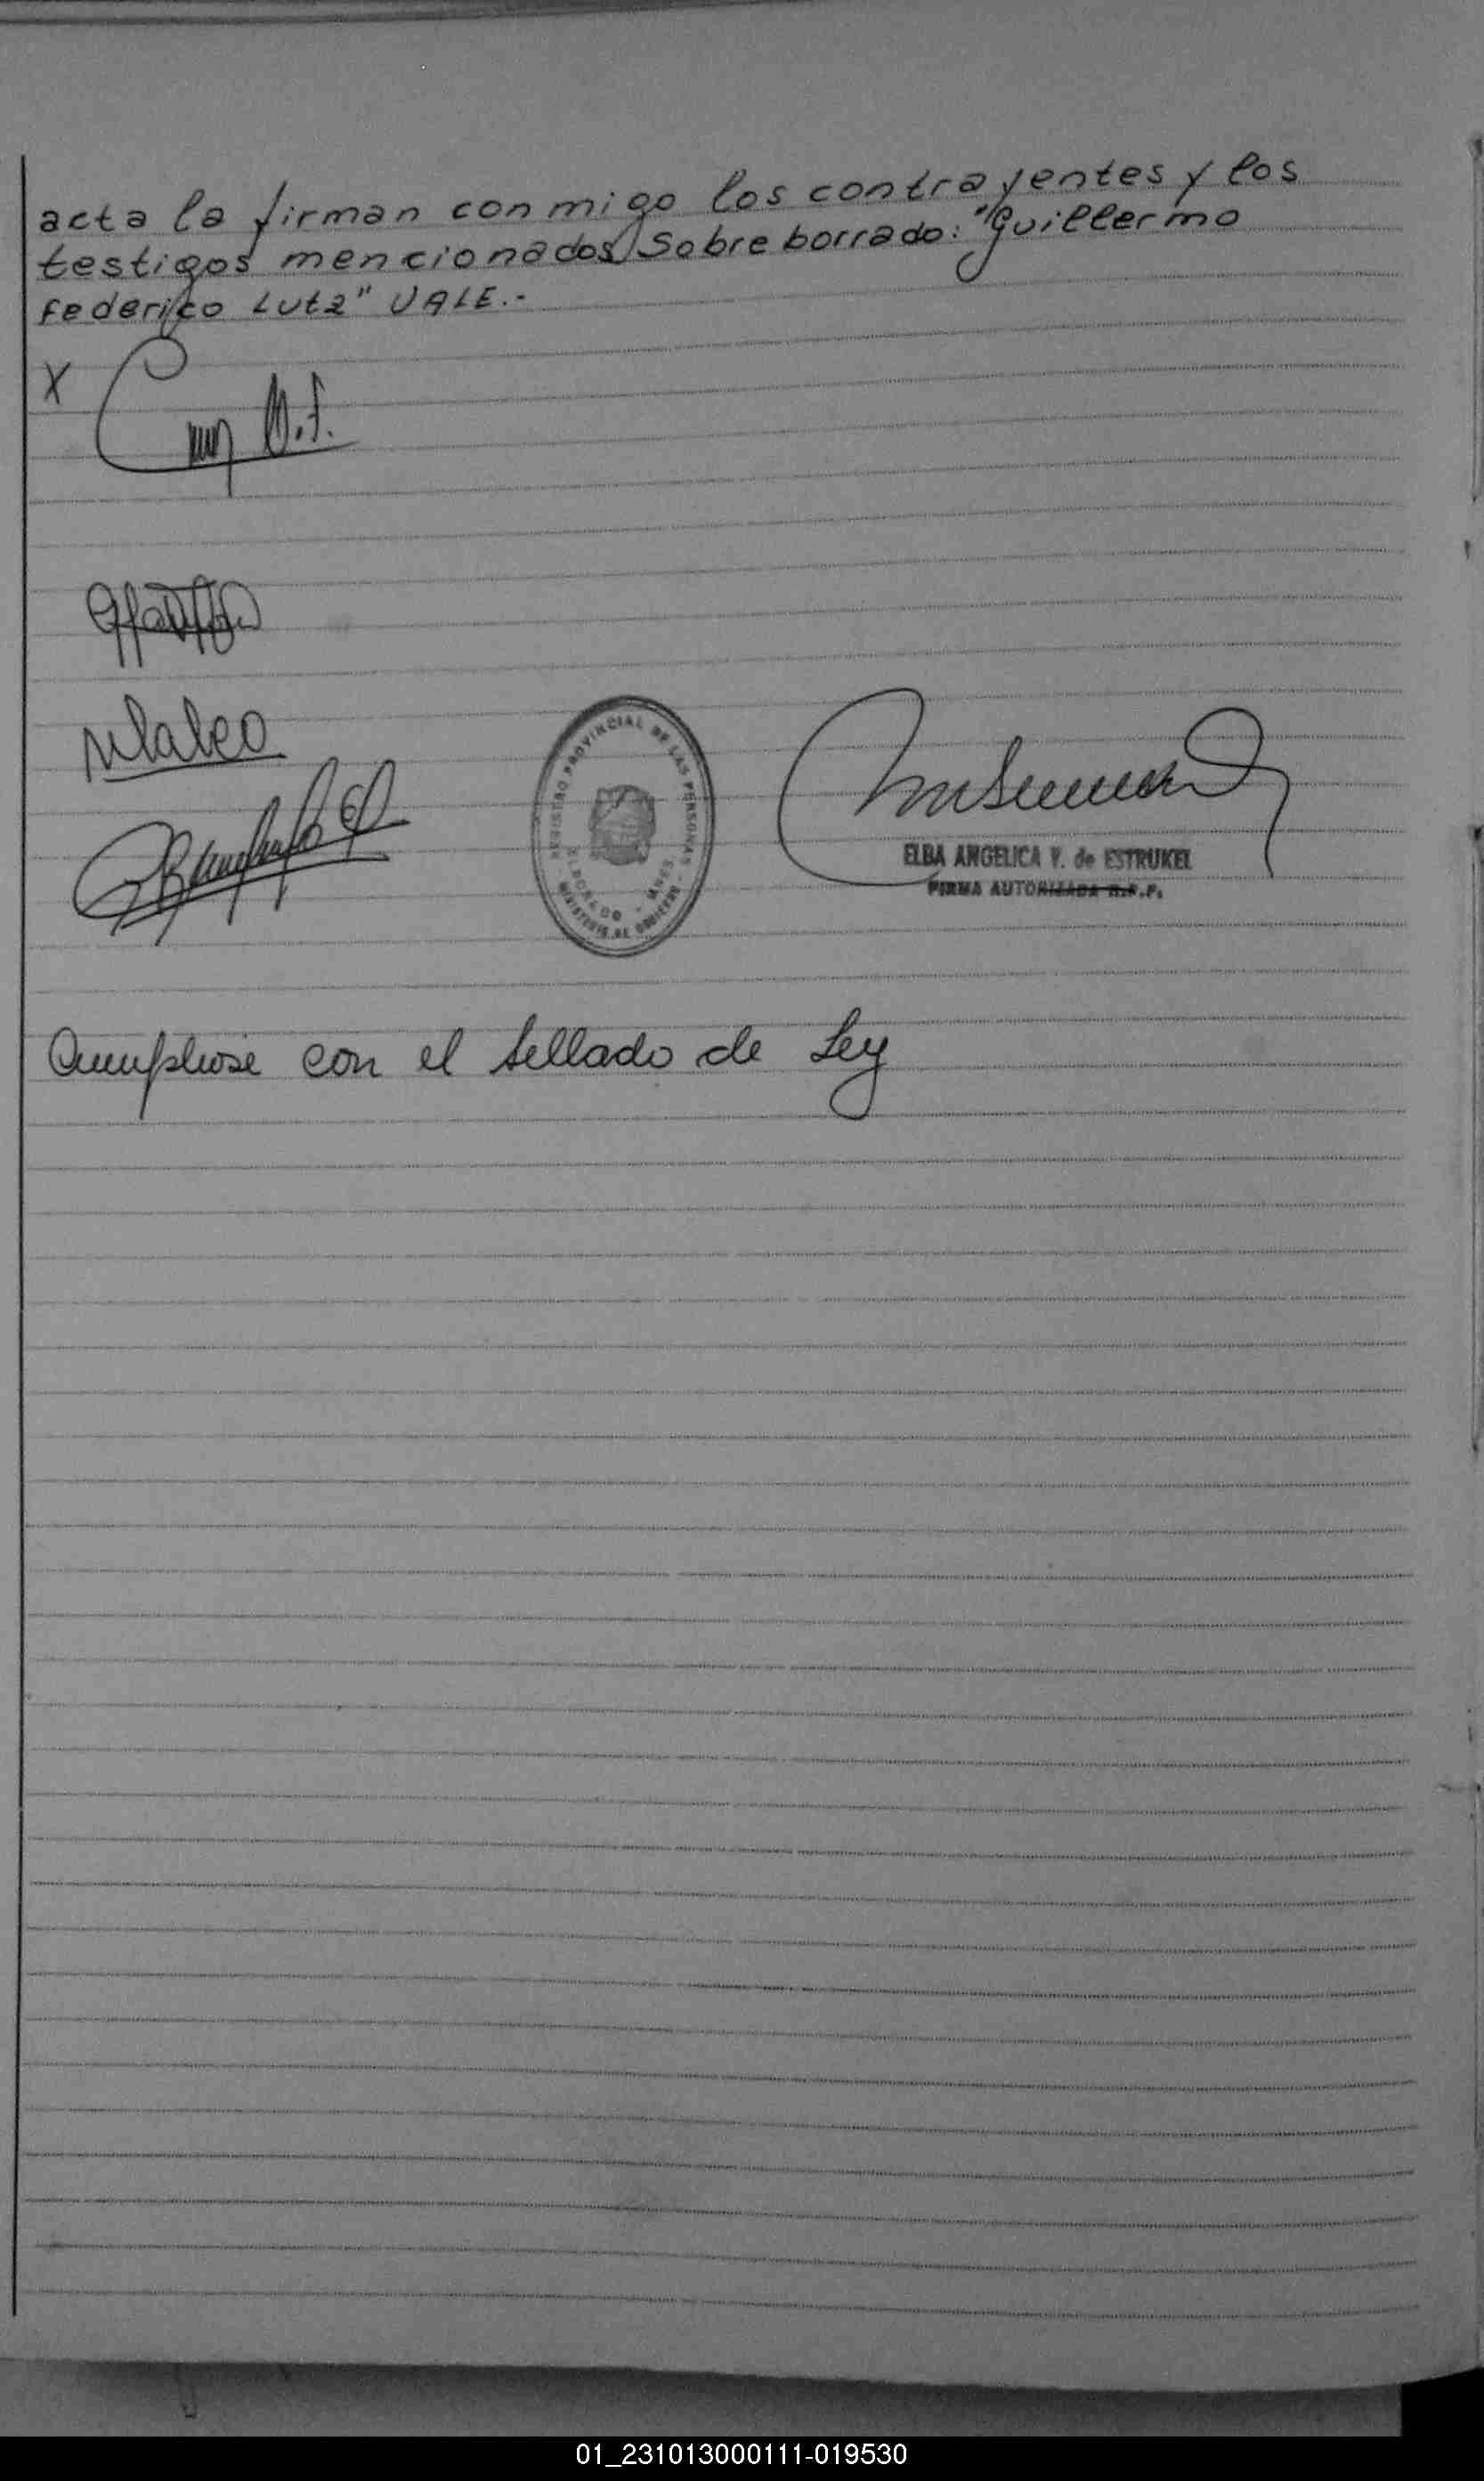 acta la firman conmigo los contrayentes y los
testigos mencionados/Sobre borrado: "Guillermo
Federico Lutz" VALE.-
X
REGISTRO PROVINCIAL DE LAS PERSONAS
ELDORADO - MNES.
MINISTERIO DE GOBIERNO
ELBA ANGELICA V. de ESTRUKEL
FIRMA AUTORIZADA R.P.P.
Cumpliose con el sellado de Ley
01_231013000111-019530